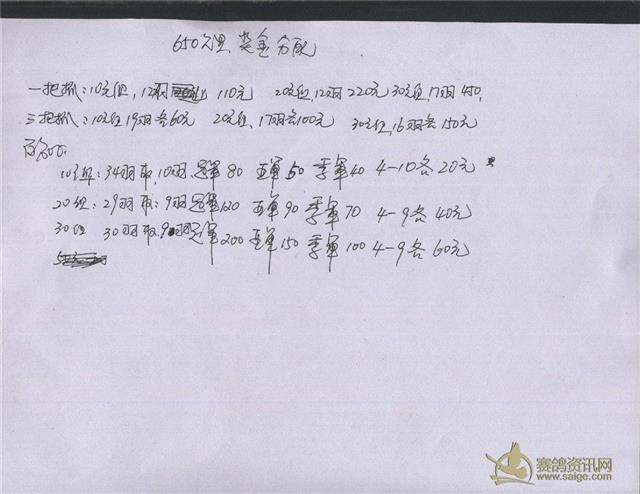 650公里奖金分配
一把抓:10元组,12羽 110元 20元组,12羽220元 30元组,17羽450,
三把抓:10元组19羽各60元 20元组,17羽各100元 30元组,16羽各150元
10组:34羽取,10羽,冠军80 亚军50 季军40 4-10各20元
20组:29羽取:9羽冠军120 亚军90 季军70 4-9各40元
30组 30羽取:9羽冠军200 亚军150 季军100 4-9各60元
赛鸽资讯网
www.saige.com